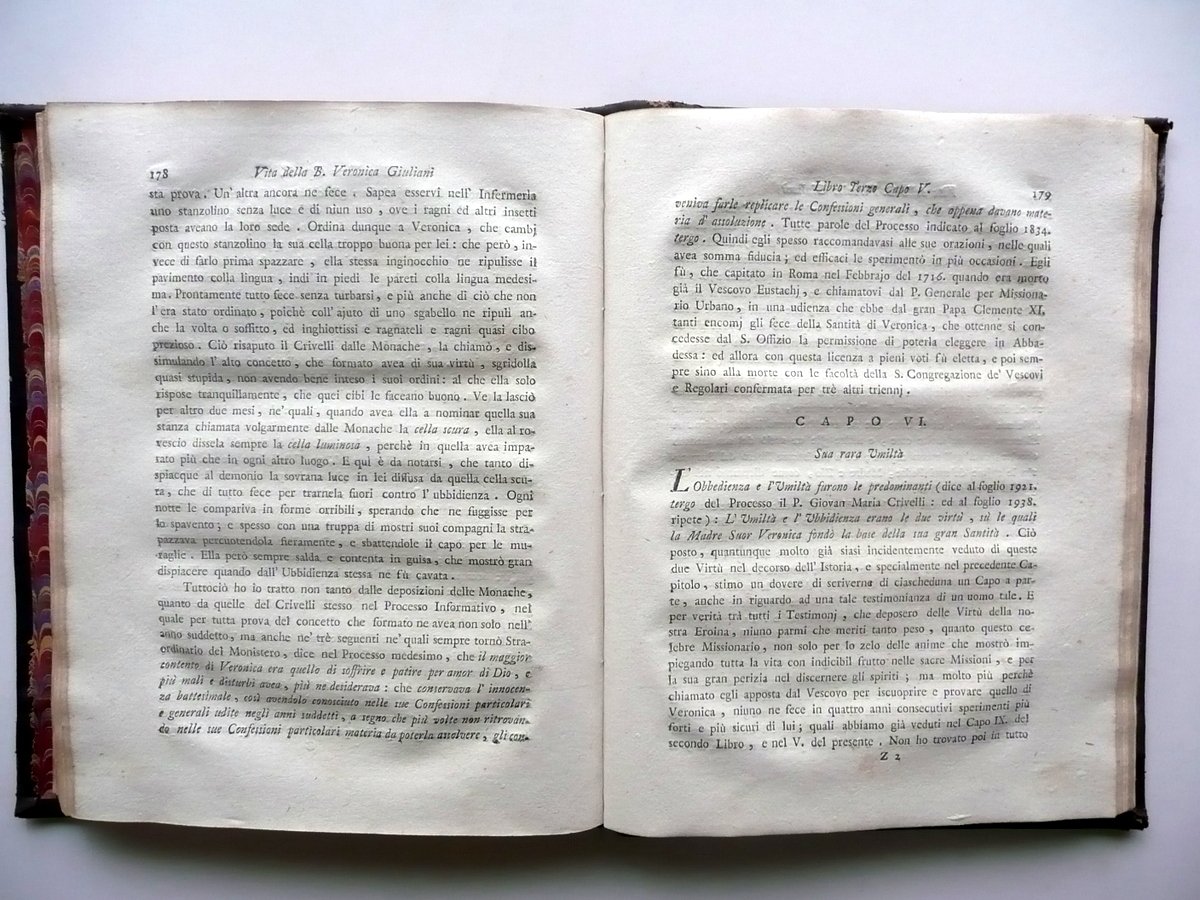 178 Vita della B. Veronica Giuliani
sta prova. Un' altra ancora ne fece. Sapea esservi nell' Infermeria
uno stanzolino senza luce e di niun uso, ove i ragni ed altri insetti
posta aveano la loro sede. Ordina dunque a Veronica, che cambj
con questo stanzolino la sua cella troppo buona per lei: che però, in-
vece di farlo prima spazzare, ella stessa inginocchio ne ripulisse il
pavimento colla lingua, indi in piedi le pareti colla lingua medesi-
ma. Prontamente tutto fece senza turbarsi, e più anche di ciò che non
l'era stato ordinato, poichè coll' ajuto di uno sgabello ne ripulì an-
che la volta o soffitto, ed inghiottissi e ragnateli e ragni quasi cibo
prezioso. Ciò risaputo il Crivelli dalle Monache, la chiamò, e dis-
simulando l' alto concetto, che formato avea di sua virtù, sgridolla
quasi stupida, non avendo bene inteso i suoi ordini: al che ella solo
rispose tranquillamente, che quei cibi le faceano buono. Ve la lasciò
per altro due mesi, ne' quali, quando avea ella a nominar quella sua
stanza chiamata volgarmente dalle Monache la cella scura, ella al ro-
vescio dissela sempre la cella luminosa, perchè in quella avea impa-
rato più che in ogni altro luogo. E quì è da notarsi, che tanto di-
spiacque al demonio la sovrana luce in lei diffusa da quella cella scu-
ra, che di tutto fece per trarnela fuori contro l' ubbidienza. Ogni
notte le compariva in forme orribili, sperando che ne fuggisse per
lo spavento; e spesso con una truppa di mostri suoi compagni la stra-
pazzava percuotendola fieramente, e sbattendole il capo per le mu-
raglie. Ella però sempre salda e contenta in guisa, che mostrò gran
dispiacere quando dall' Ubbidienza stessa ne fù cavata.
Tuttociò ho io tratto non tanto dalle deposizioni delle Monache,
quanto da quelle del Crivelli stesso nel Processo Informativo, nel
quale per tutta prova del concetto che formato ne avea non solo nell'
anno suddetto, ma anche ne' trè seguenti ne' quali sempre tornò Stra-
ordinario del Monistero, dice nel Processo medesimo, che il maggior
contento di Veronica era quello di soffrire e patire per amor di Dio, e
più mali e disturbi avea, più ne desiderava: che conservava l' innocen-
za battesimale, così avendolo conosciuto nelle sue Confessioni particolari
e generali udite negli anni suddetti, a segno che più volte non ritrovan-
do nelle sue Confessioni particolari materia da poterla assolvere, gli con-
Libro Terzo Capo V. 179
veniva farle replicare le Confessioni generali, che appena davano mate-
ria d' assoluzione. Tutte parole del Processo indicato al foglio 1834.
tergo. Quindi egli spesso raccomandavasi alle sue orazioni, nelle quali
avea somma fiducia; ed efficaci le sperimentò in più occasioni. Egli
fù, che capitato in Roma nel Febbrajo del 1716. quando era morto
già il Vescovo Eustachj, e chiamatovi dal P. Generale per Missiona-
rio Urbano, in una udienza che ebbe dal gran Papa Clemente XI,
tanti encomj gli fece della Santità di Veronica, che ottenne si con-
cedesse dal S. Offizio la permissione di poterla eleggere in Abba-
dessa: ed allora con questa licenza a pieni voti fù eletta, e poi sem-
pre sino alla morte con le facoltà della S. Congregazione de' Vescovi
e Regolari confermata per trè altri triennj.
CAPO VI.
Sua rara Umiltà
L'Obbedienza e l'Umiltà furono le predominanti (dice al foglio 1921.
tergo del Processo il P. Giovan Maria Crivelli: ed al foglio 1938.
ripete): L' Umiltà e l' Ubbidienza erano le due virtù, sù le quali
la Madre Suor Veronica fondò la base della sua gran Santità. Ciò
posto, quantunque molto già siasi incidentemente veduto di queste
due Virtù nel decorso dell' Istoria, e specialmente nel precedente Ca-
pitolo, stimo un dovere di scriverne di ciascheduna un Capo a par-
te, anche in riguardo ad una tale testimonianza di un uomo tale. E
per verità trà tutti i Testimonj, che deposero delle Virtù della no-
stra Eroina, niuno parmi che meriti tanto peso, quanto questo ce-
lebre Missionario, non solo per lo zelo delle anime che mostrò im-
piegando tutta la vita con indicibil frutto nelle sacre Missioni, e per
la sua gran perizia nel discernere gli spiriti; ma molto più perchè
chiamato egli apposta dal Vescovo per iscuoprire e provare quello di
Veronica, niuno ne fece in quattro anni consecutivi sperimenti più
forti e più sicuri di lui; quali abbiamo già veduti nel Capo IX. del
secondo Libro, e nel V. del presente. Non ho trovato poi in tutto
Z 2